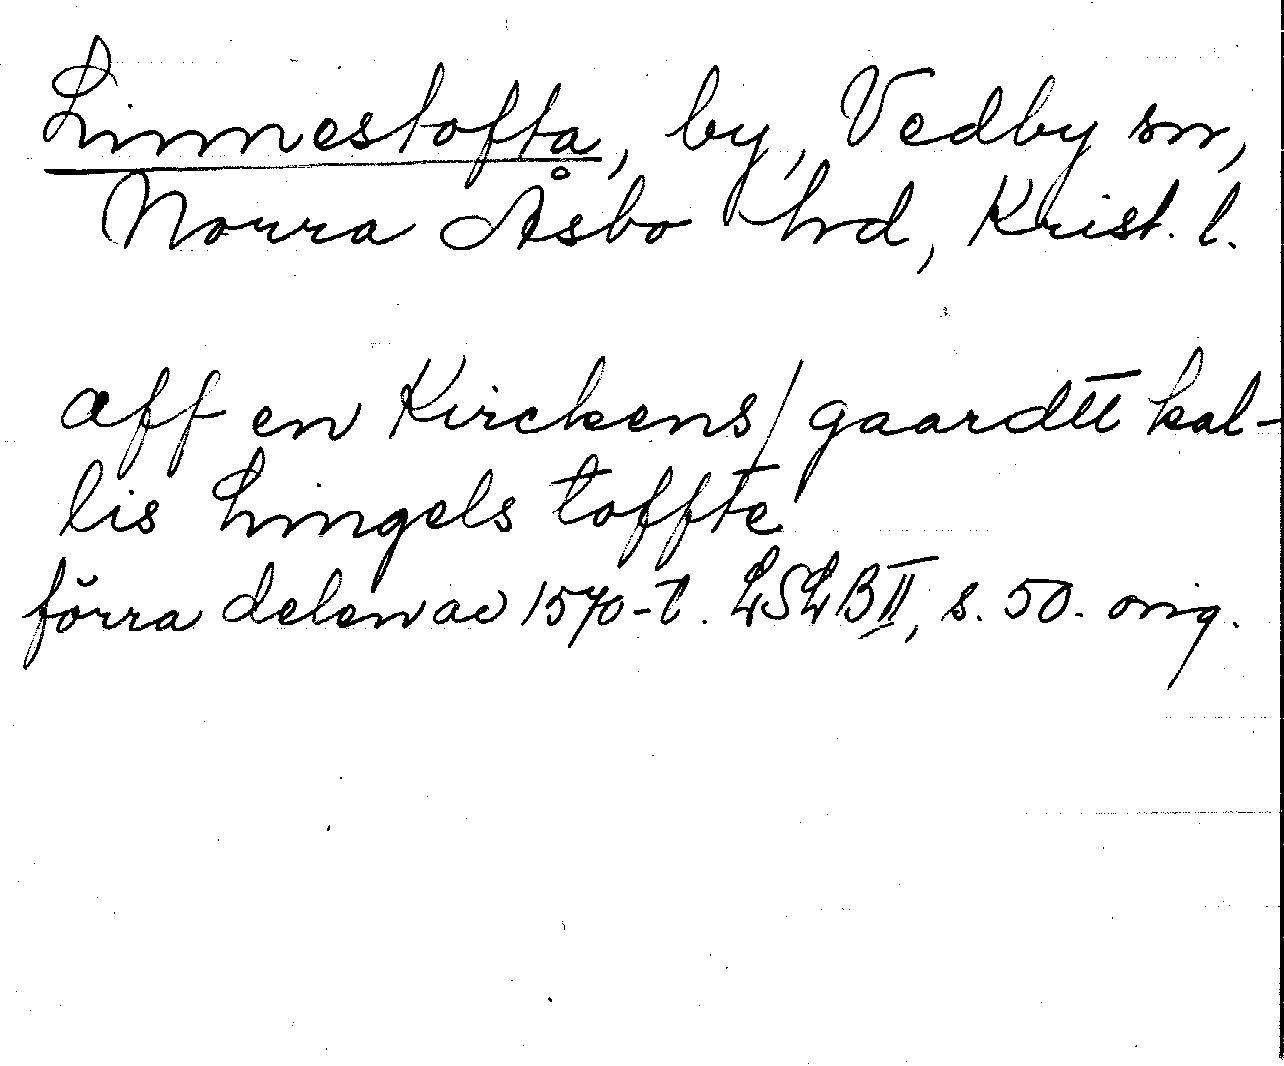 Linnestofta, by, Vedby sn,
Norra Åsbo hrd, Krist. l.
aff en Kirckens/gaardtt kal-
lis Lingels toffte
förra delen av 1570-t. LSLB II, s. 50. orig.